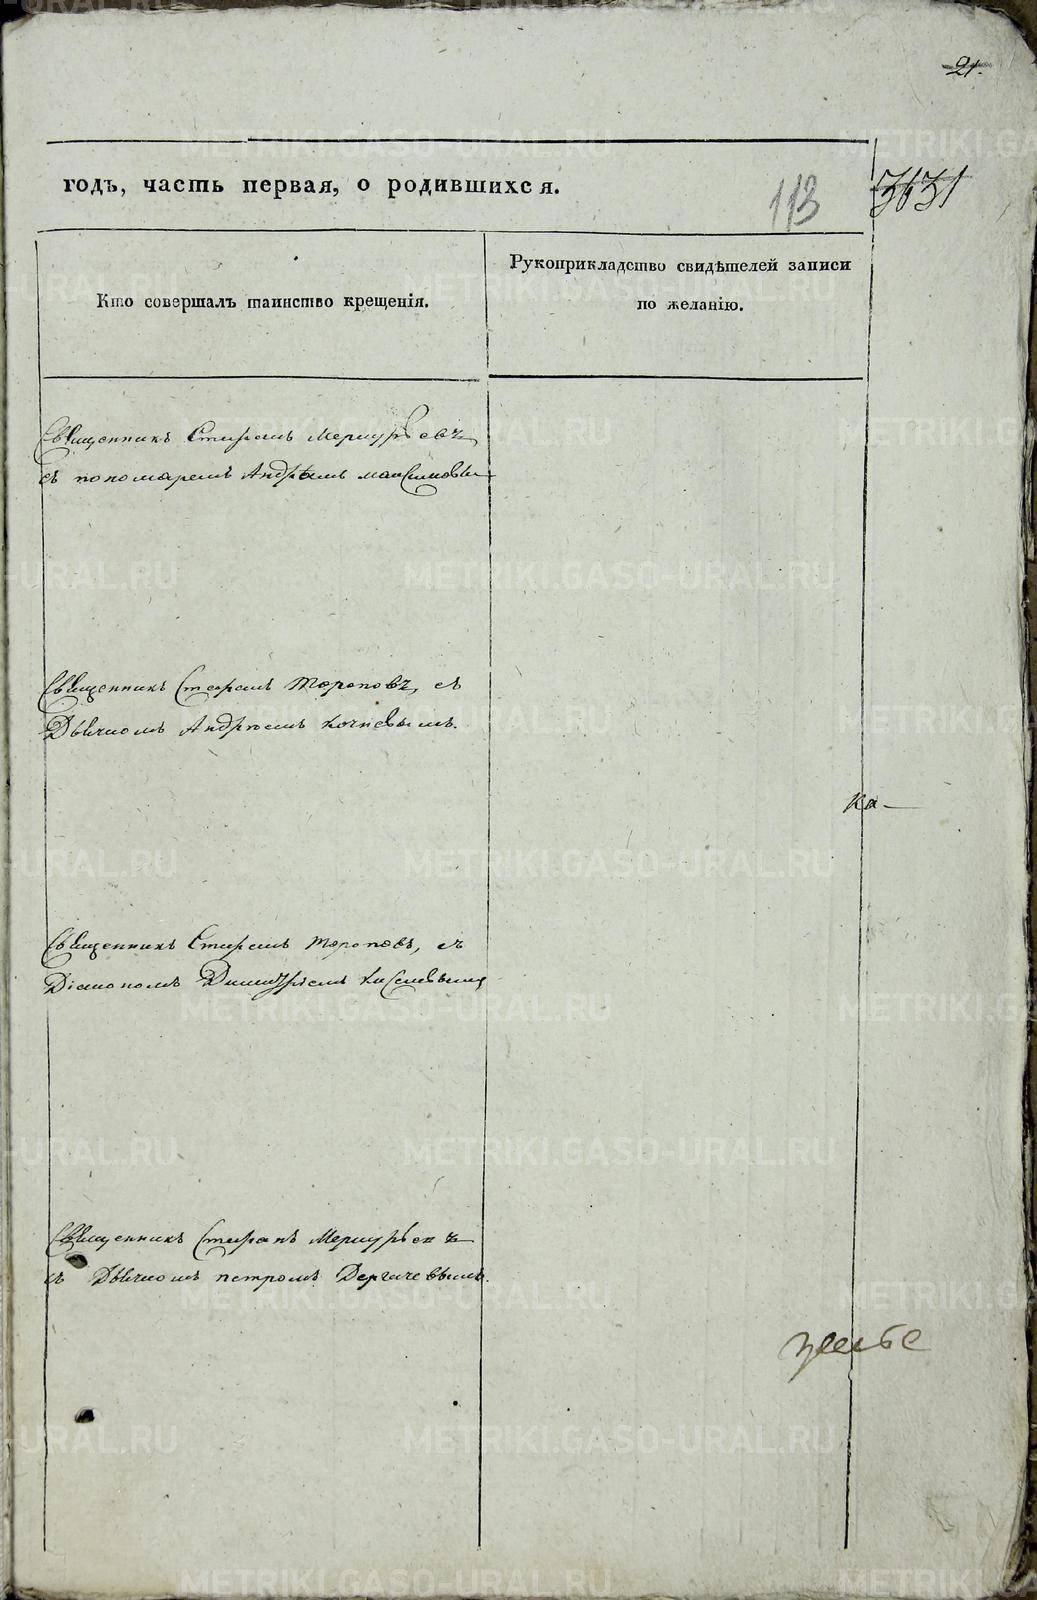 21.
годъ, часть первая, о родившихся.
113
3631
Кто совершалъ таинство крещенія.
Рукоприкладство свидѣтелей записи
по желанію.
Священникъ Стефанъ Меркурьевъ
съ пономаремъ Андреемъ Максимовы
Священникъ Стефанъ Тороповъ, съ
Дьячкомъ Андреемъ Кочневымъ.
Ка-
Священникъ Стефанъ Тороповъ, съ
Діакономъ Димитріемъ Киселевымъ
Священникъ Стефанъ Меркурьевъ
съ Дьячкомъ Петромъ Дергачевымъ.
METRIKI.GASO-URAL.RU